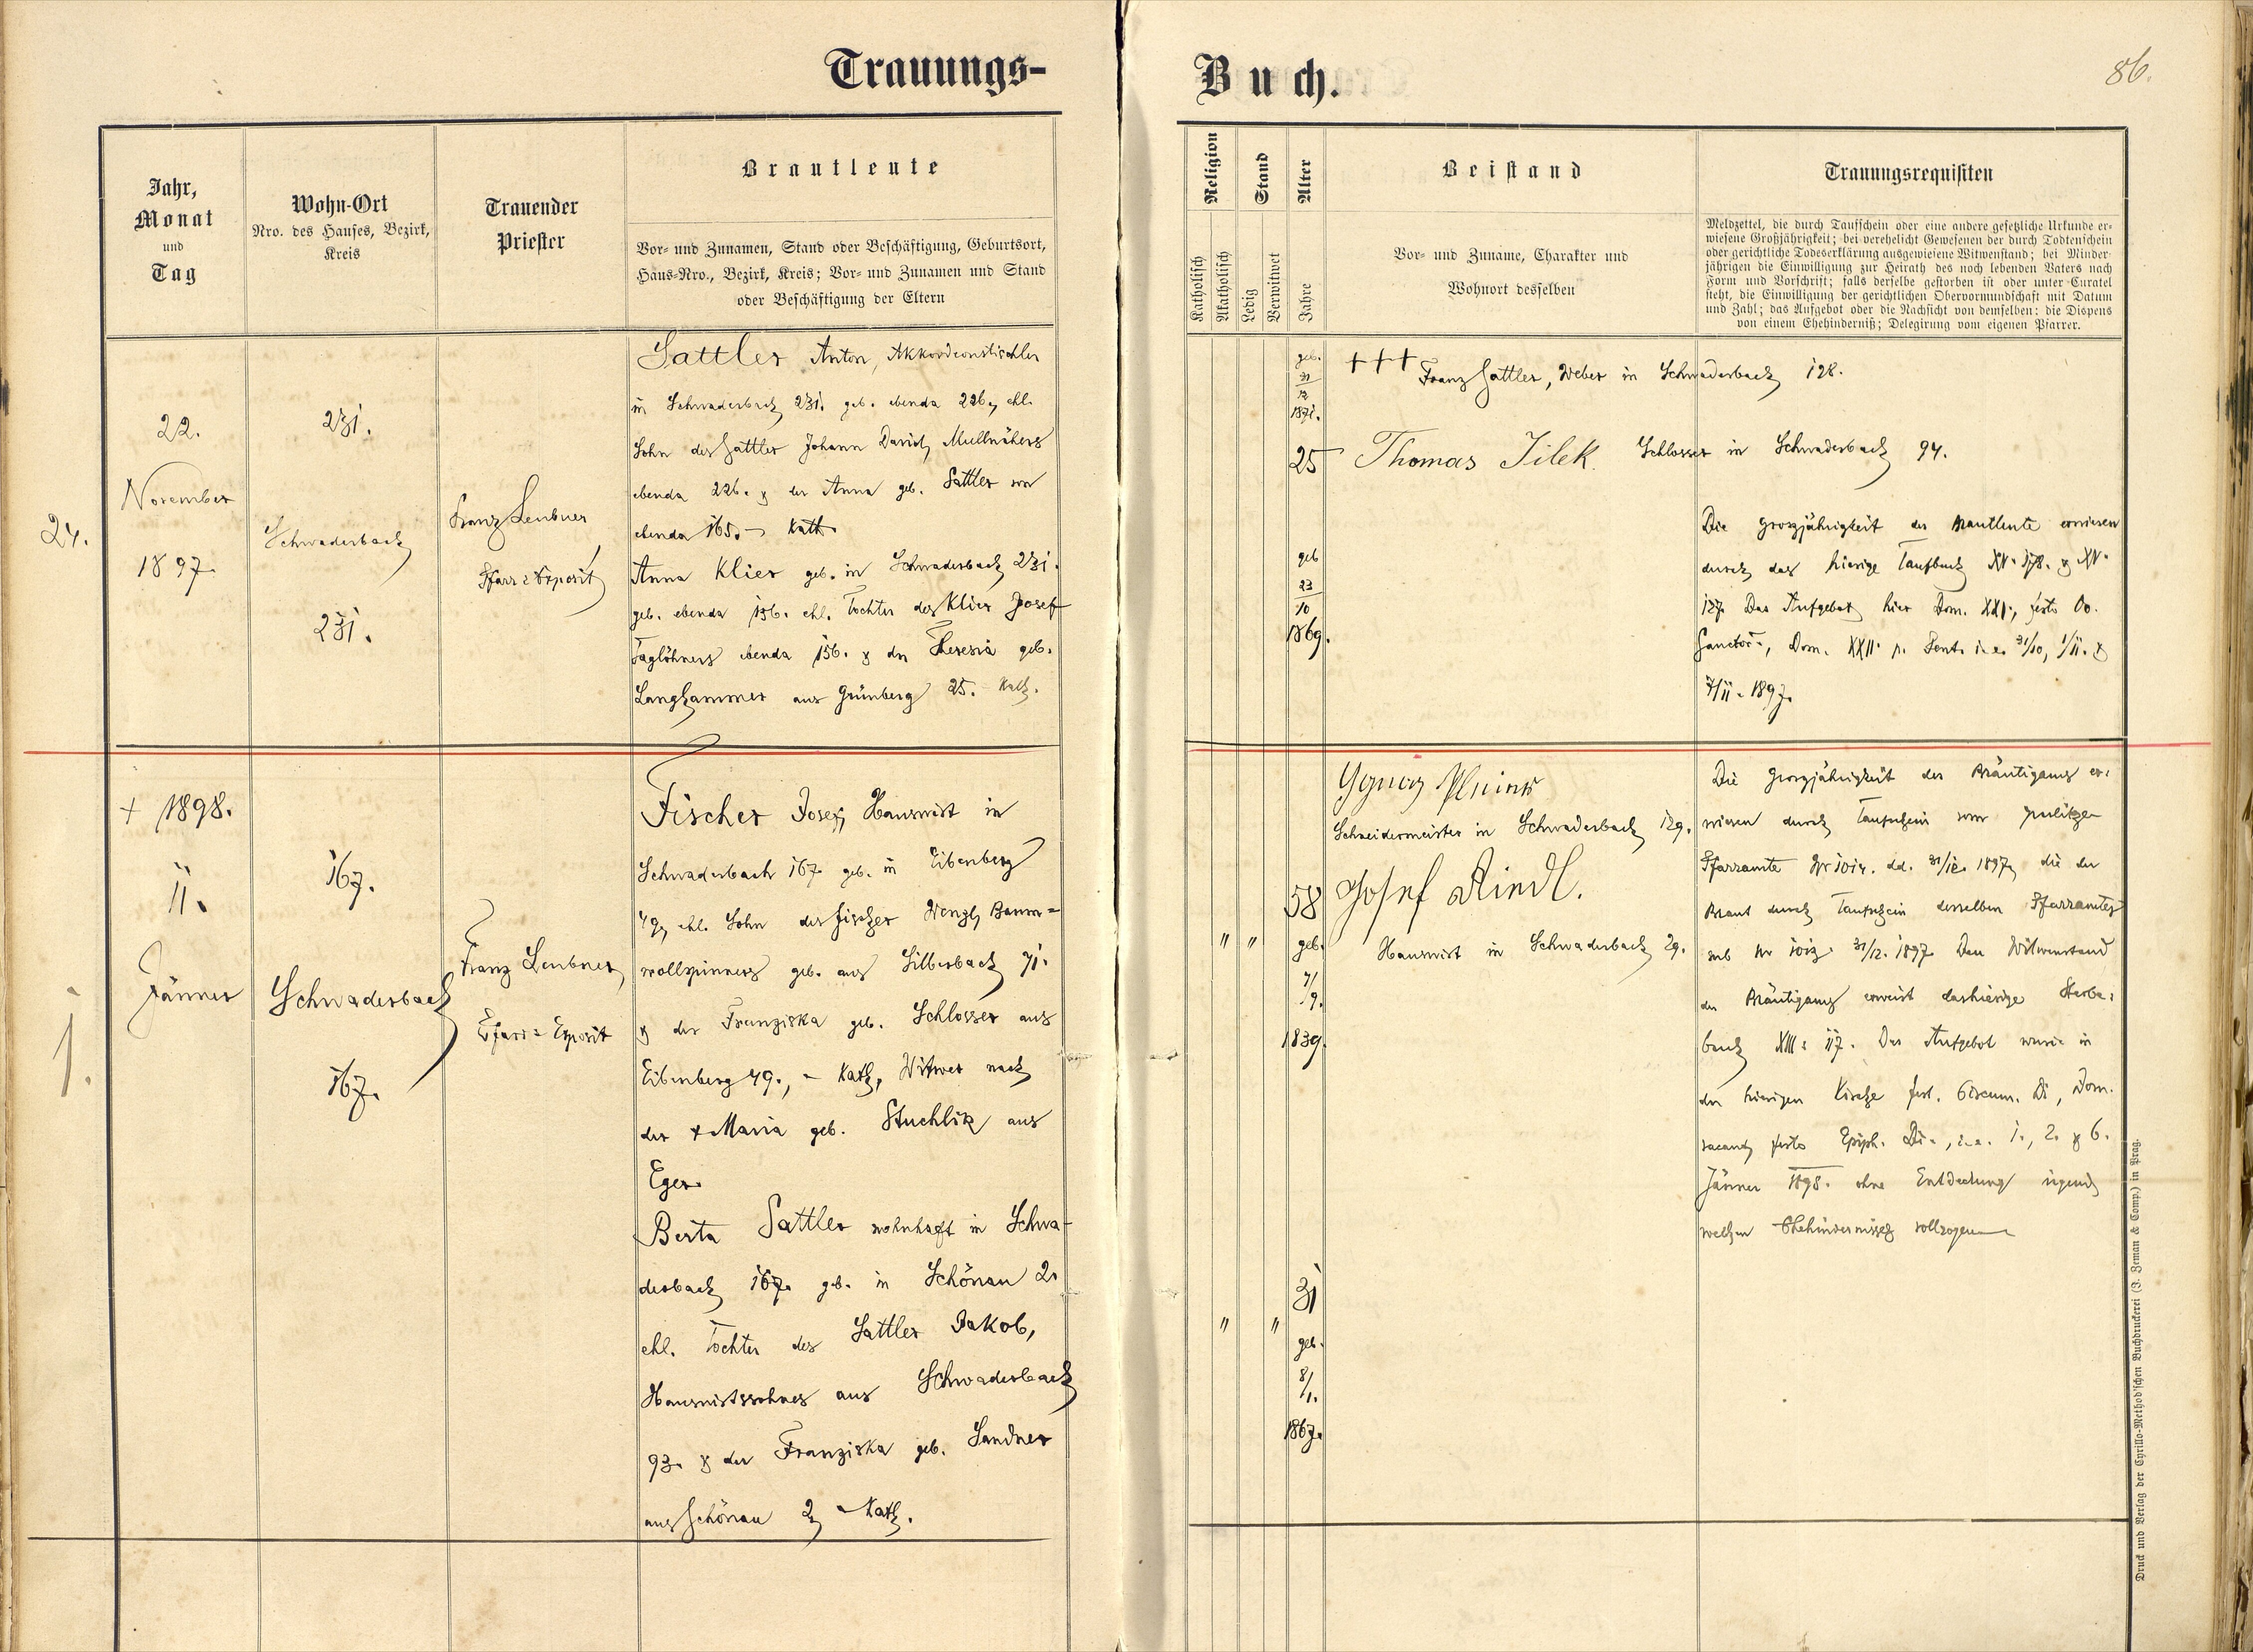 Trauungs-
Buch.
86.
Jahr,
Monat
und
Tag
Wohn-Ort
Nro. des Hauses, Bezirk,
Kreis
Trauender
Priester
Brautleute
Vor- und Zunamen, Stand oder Beschäftigung, Geburtsort,
Haus-Nro., Bezirk, Kreis; Vor- und Zunamen und Stand
oder Beschäftigung der Eltern
Religion
Stand
Alter
Katholisch
Akatholisch
Ledig
Verwitwet
Jahre
Beistand
Vor- und Zuname, Charakter und
Wohnort desselben
Trauungsrequisiten
Meldzettel, die durch Taufschein oder eine andere gesetzliche Urkunde er-
wiesene Großjährigkeit; bei verehelicht Gewesenen der durch Todtenschein
oder gerichtliche Todeserklärung ausgewiesene Witwenstand; bei Minder-
jährigen die Einwilligung zur Heirath des noch lebenden Vaters nach
Form und Vorschrift; falls derselbe gestorben ist oder unter Curatel
steht, die Einwilligung der gerichtlichen Obervormundschaft mit Datum
und Zahl; das Aufgebot oder die Nachsicht von demselben: die Dispens
von einem Ehehinderniß; Delegirung vom eigenen Pfarrer.
24.
22.
November
1897.
231.
Schwaderbach
231.
Franz Leubner
Pfarr=Exposit
Sattler Anton, Akkordeontischler
in Schwaderbach 231. geb. ebenda 226, ehl.
Sohn des Sattler Johann David,
ebenda 226. & der Anna geb. Sattler von
ebenda 165. – kath.
Anna Klier geb. in Schwaderbach 231.
geb. ebenda 156. ehl. Tochter des Klier Josef
Taglöhners ebenda 156. & der Theresia geb.
Langhammer aus Grünberg 25. kath.
geb.
31
12
1871.
25
geb
23
10
1869.
+++ Franz Sattler, Weber in Schwaderbach 128.
Thomas Jilek. Schlosser in Schwaderbach 94.
Die Grosjährigkeit der Brautleute erwiesen
durch das hierige Taufbuch XV. 178. & XV.
127. Das Aufgebot hier Dom. XXI., festo Oo.
Sanctor., Dom. XXII. p. Pent. i. e. 31/10, 1/11. &
7/11. 1897.
1.
+ 1898.
11.
Jänner
167.
Schwaderbach
167.
Franz Leubner,
Pfarr=Exposit
Fischer Josef, Hauswirt in
Schwaderbach 167. geb. in Eibenberg
49, ehl. Sohn des Fischer Wenzl, Baum=
wollspinners geb. aus Silberbach 71.
& der Franziska geb. Schlosser aus
Eibenberg 49., – kath, Witwer nach
der + Maria geb. Stuchlik aus
Eger.
Berta Sattler wohnhaft in Schwa-
derbach 167. geb. in Schönau 2.
ehl. Tochter des Sattler Jakob,
Hauswirtssohnes aus Schwaderbach
93. & der Franziska geb. Sandner
aus Schönau 2, – kath.
" "
58
geb.
7/
9.
1839.
" "
31
geb.
8/
1.
1867.
Schneidermeister in Schwaderbach 129.
Josef Riedl.
Hauswirt in Schwaderbach 29.
Die Grosjährigkeit des Bräutigams er=
wiesen durch Taufschein vom
Pfarramte Nr 1014. dd. 31/12. 1897, die der
Braut durch Taufschein desselben Pfarramtes
sub Nr 1013. 31/12. 1897. Den Witwenstand
des Bräutigams erweist das hierige Sterbe=
buch XIII. 117. Das Aufgebot wurde in
der hierigen Kirche fest. Circum. Di, Dom.
vacant, festo Epiph. Di., i. e. 1., 2. & 6.
Jänner 1898. ohne Entdeckung irgend
welchen Ehehindernisses vollzogen
Druck und Verlag der Cyrillo-Method'schen Buchdruckerei (J. Zeman & Comp.) in Prag.